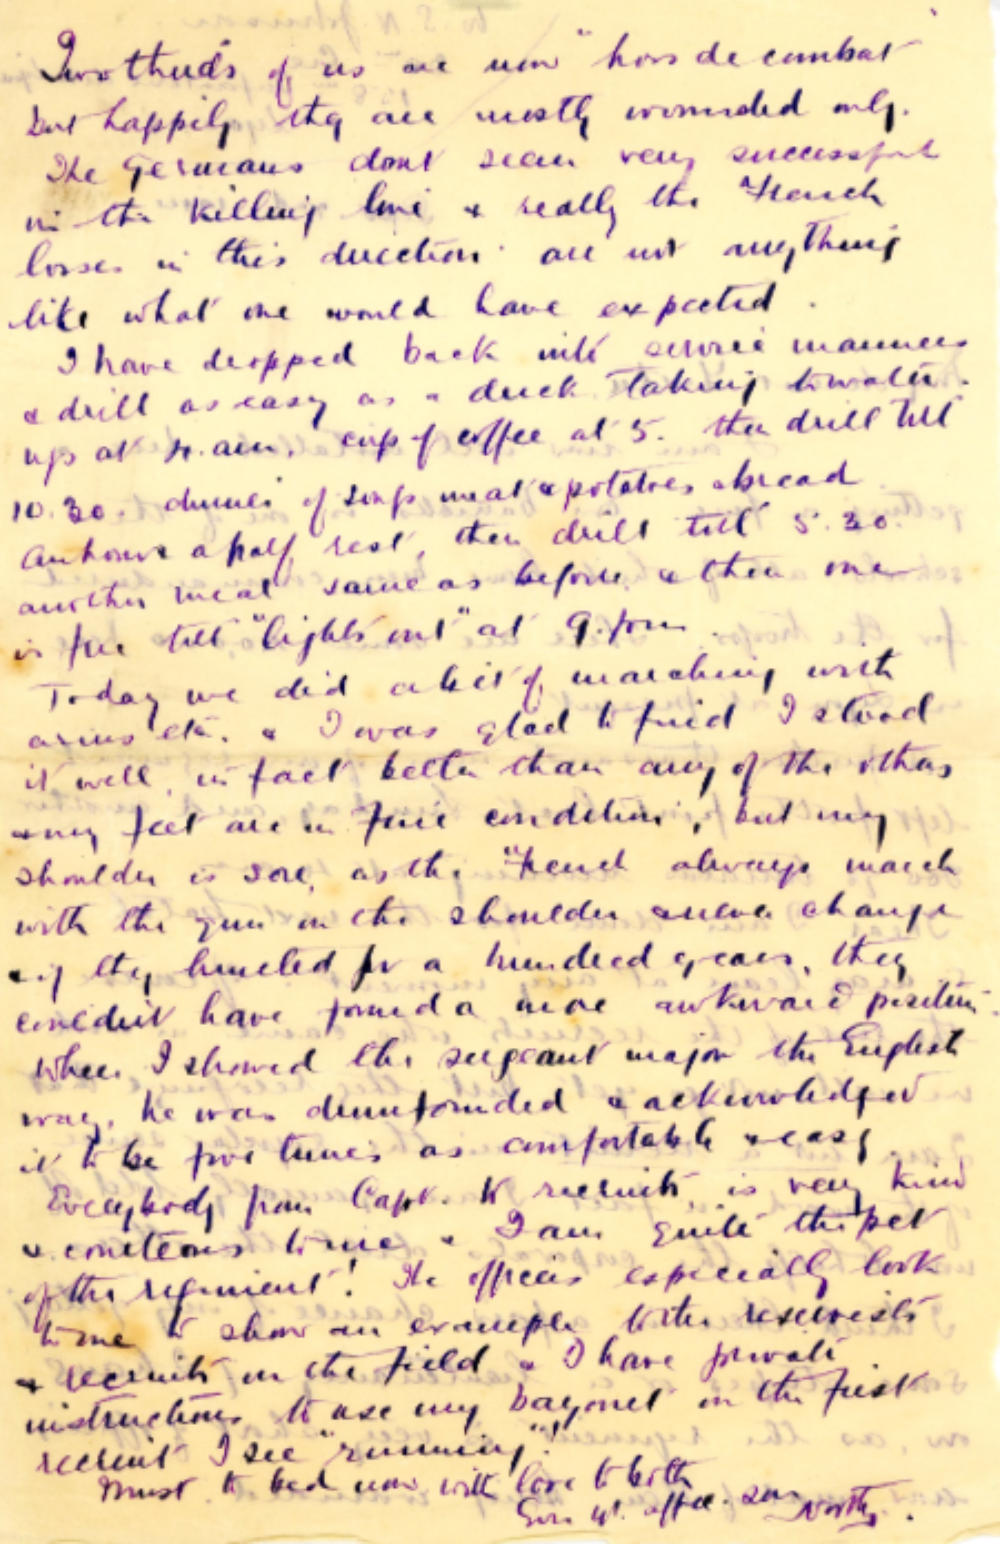 Two thirds of us are now "hors de combat
but happily they are mostly wounded only.
The Germans dont seem very successful
in the killing line & really the French
losses in this direction are not anything
like what one would have expected.
I have dropped back into service manners
& drill as easy as a duck taking to water.
up at 4. am. cup of coffee at 5. then drill till
10.30. dinner of soup meat & potatoes & bread
an hour & a half rest, then drill till 5.30.
another meal same as before, & then one
is free till "lights out" at 9. pm.
Today we did a bit of marching with
arms etc. & I was glad to find I stood
it well, in fact better than any of the others
& my feet are in fine condition, but my
shoulder is sore, as the French always march
with the gun on the shoulder & never change
& if they hunted for a hundred years, they
couldnt have found a more awkward position.
When I showed the sergeant major the English
way, he was dumfounded & acknowledged
it to be five times as comfortable & easy
Everybody from Capt. to recruits, is very kind
& courteous to me & I am quite the pet
of the regiment! The officers especially look
to me to show an example to the reservists
& recruits on the field & I have private
instructions to use my bayonet on the first
recruit I see "running"!
Must to bed now with love to both
Ever yr. affec. son